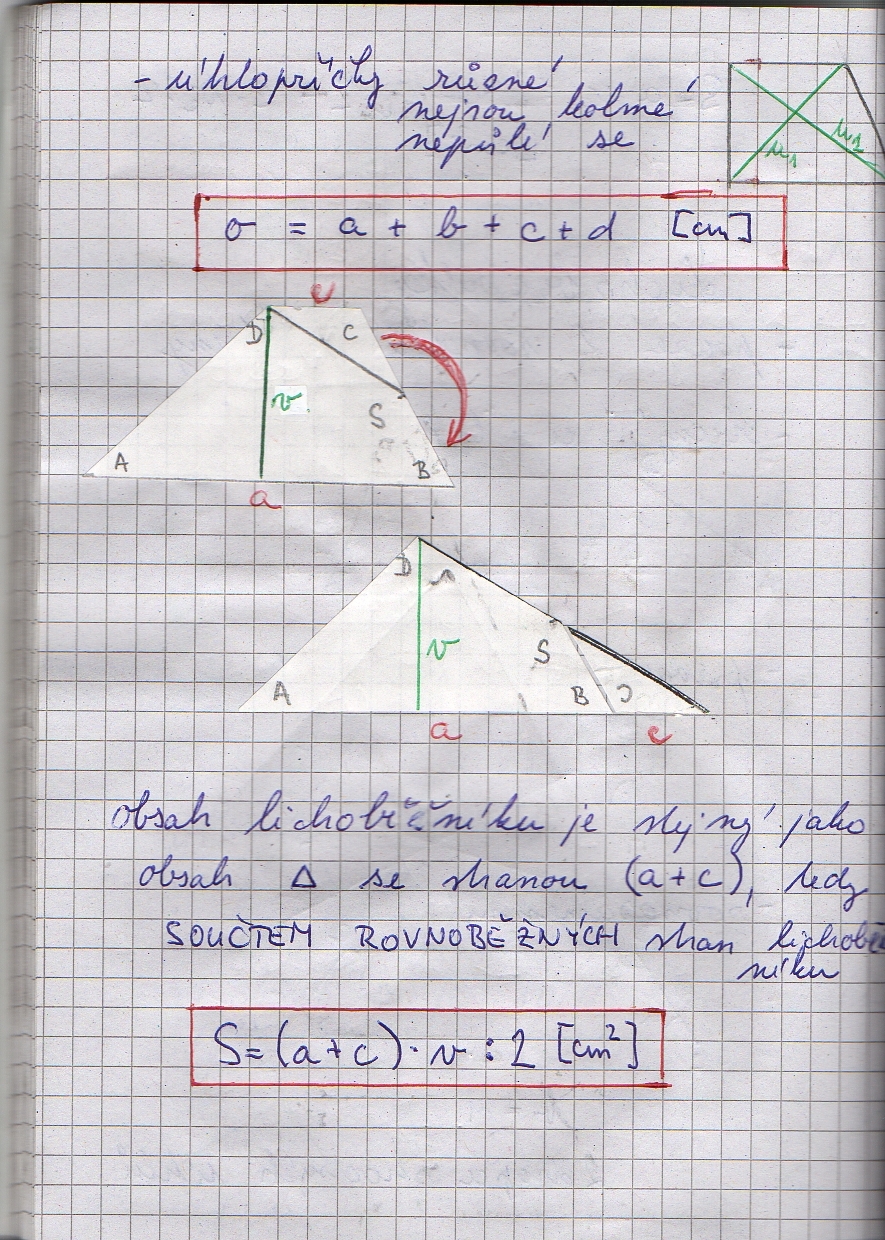 - úhlopříčky různé
nejsou kolmé
nepůlí se
u1
u2
o = a + b + c + d [cm]
c
D
C
v
S
A
B
a
D
v
S
A
B
C
a
c
obsah lichoběžníku je stejný jako
obsah Δ se stranou (a+c), tedy
SOUČTEM ROVNOBĚŽNÝCH stran lichobě
níku
S = (a+c) · v : 2 [cm²]